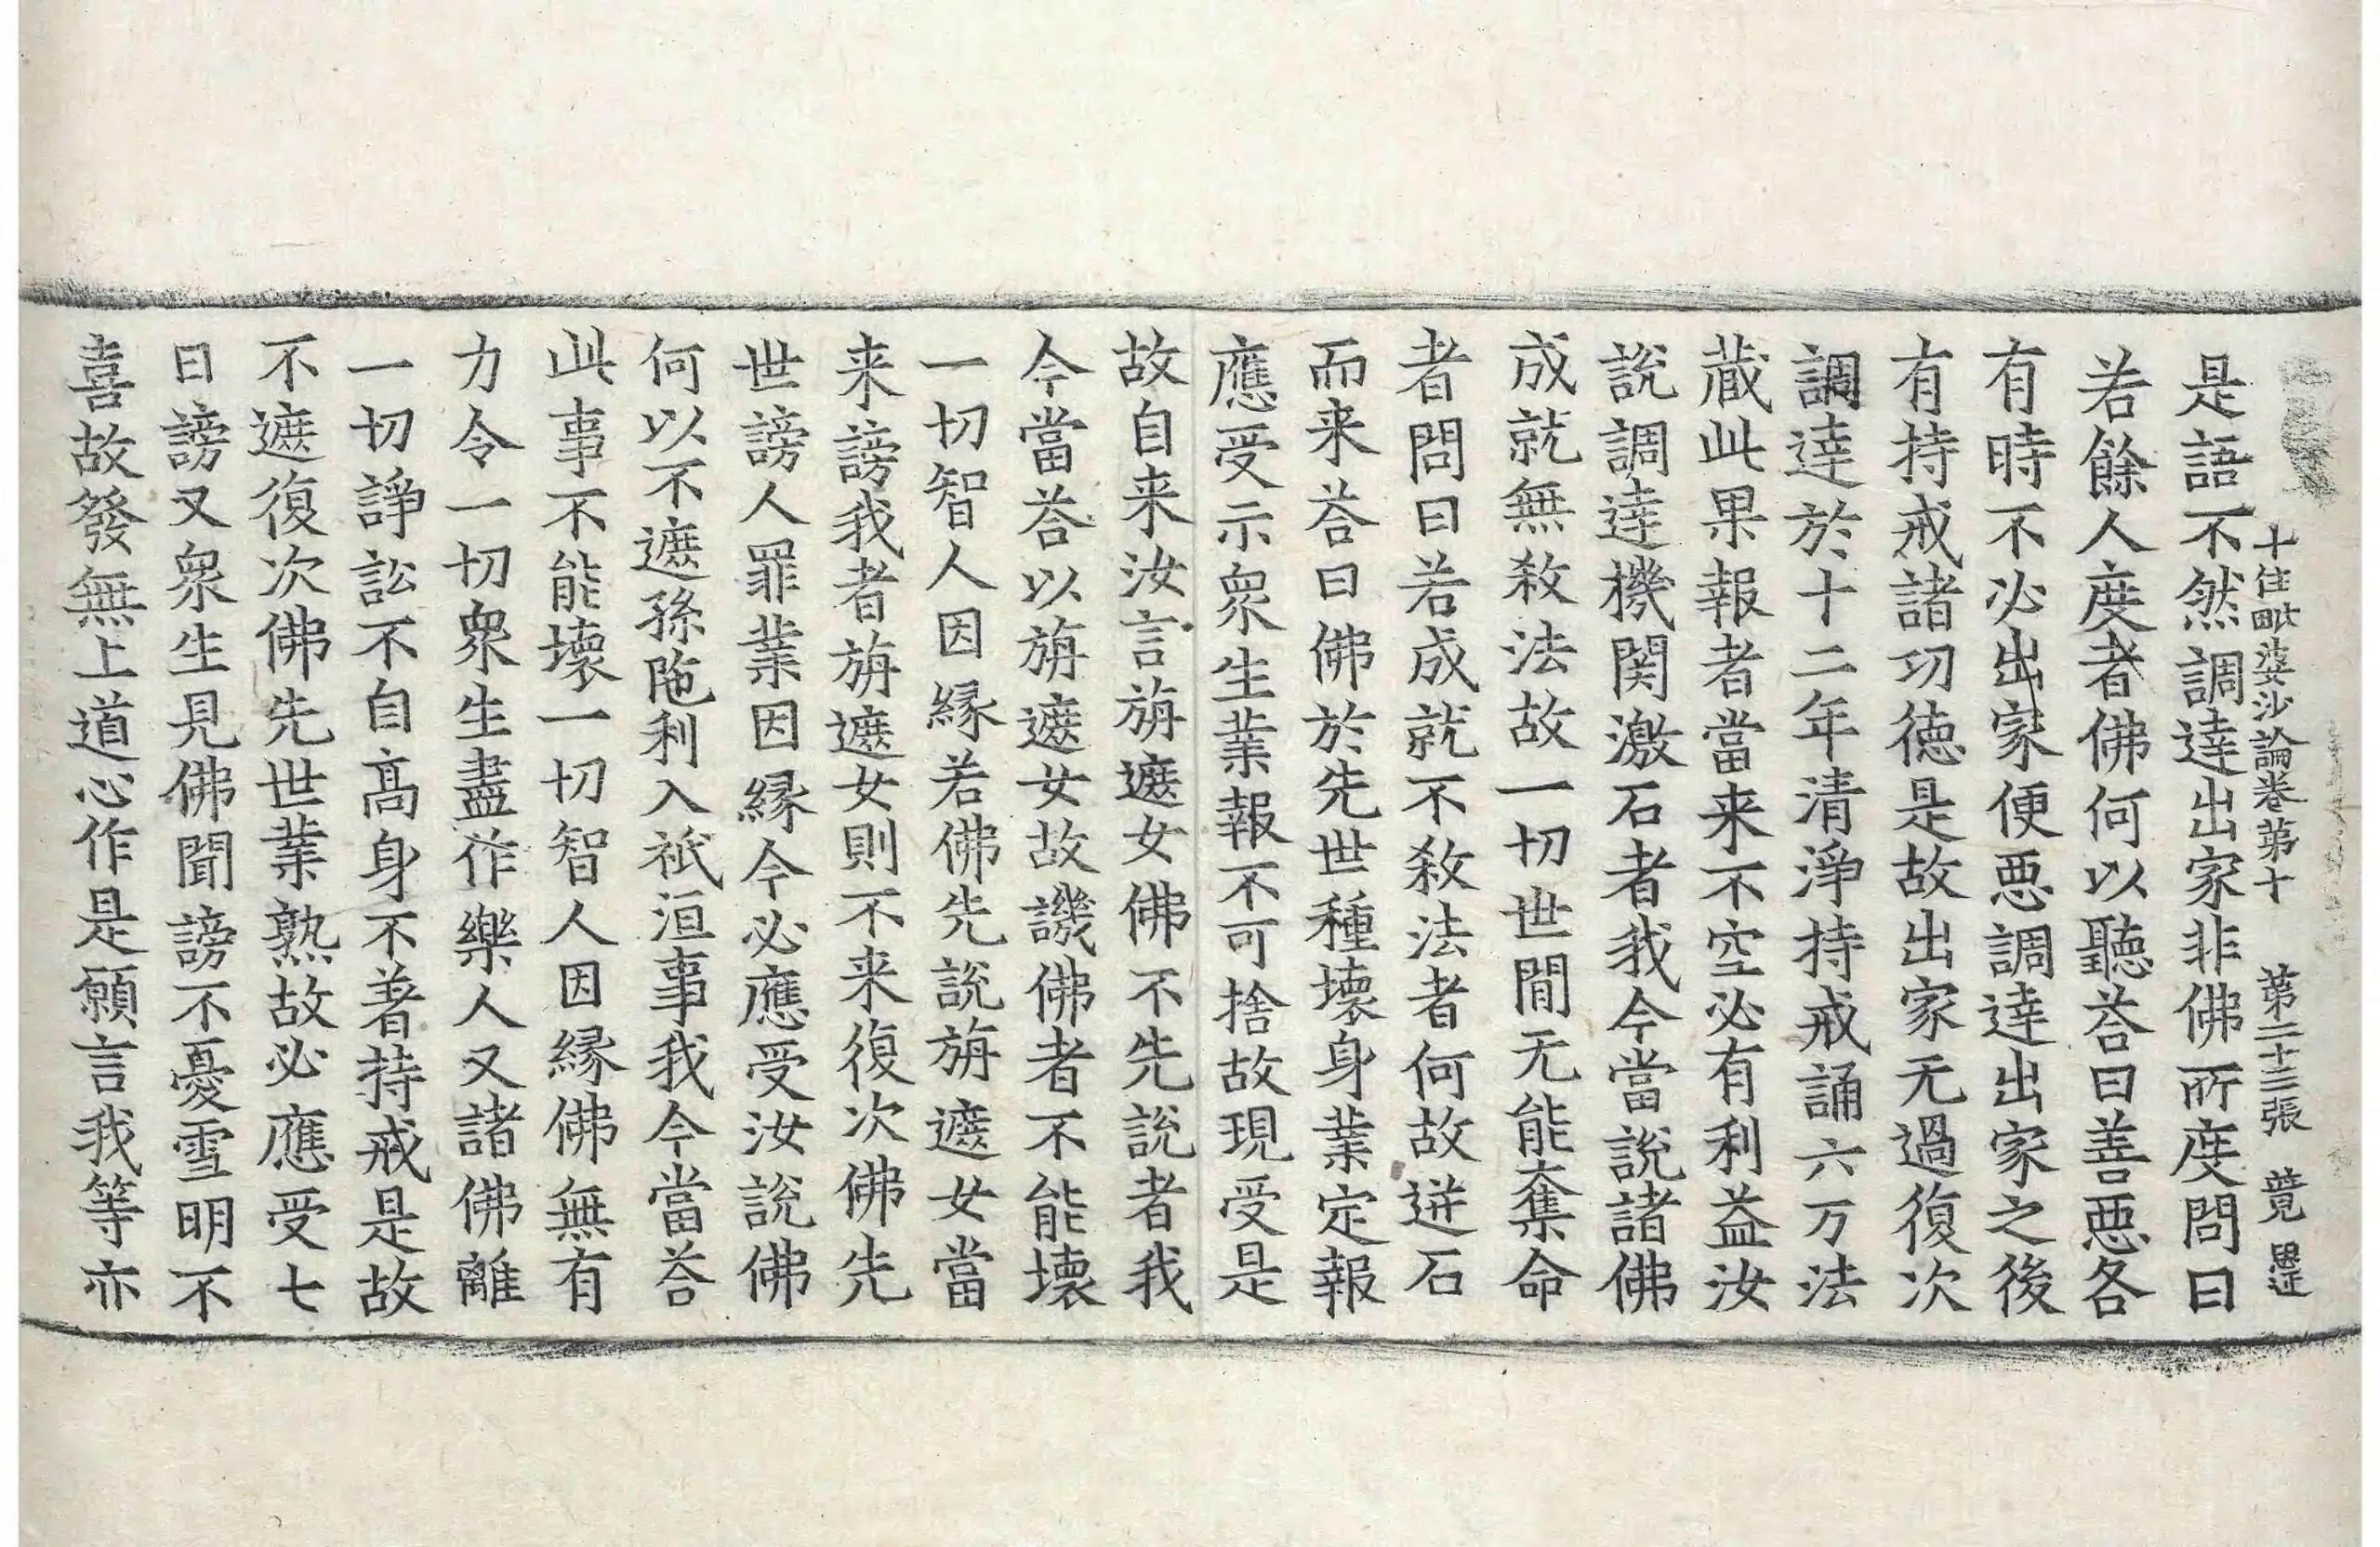 十住毗婆沙論卷第十 第二十三張 竟
是語不然調達出家非佛所度問曰
若餘人度者佛何以聽荅曰善惡各
有時不必出家便惡調達出家之後
有持戒諸功德是故出家无過復次
調達於十二年清淨持戒誦六万法
藏此果報者當来不空必有利益汝
說調達機関激石者我今當說諸佛
成就無殺法故一切世間无能奪命
者問曰若成就不殺法者何故迸石
而来荅曰佛於先世種壞身業定報
應受示衆生業報不可捨故現受是
故自来汝言旃遮女佛不先說者我
今當荅以旃遮女故譏佛者不能壞
一切智人因縁若佛先說旃遮女當
来謗我者旃遮女則不来復次佛先
世謗人罪業因縁今必應受汝說佛
何以不遮孫陁利入祇洹事我今當荅
此事不能壞一切智人因縁佛無有
力令一切衆生盡作樂人又諸佛離
一切諍訟不自高身不著持戒是故
不遮復次佛先世業熟故必應受七
日謗又衆生見佛聞謗不憂雪明不
喜故發無上道心作是願言我等亦